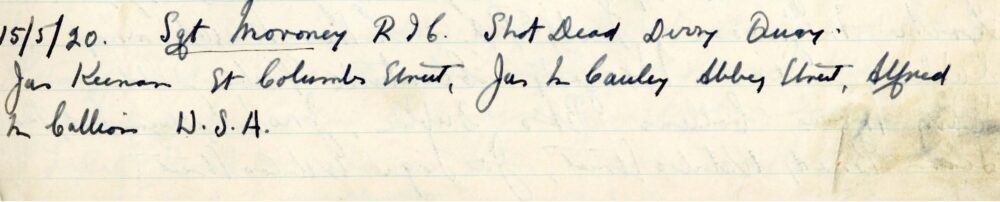 15/5/20. Sgt Moroney R I C. Shot Dead Derry Quay.
Jas Keenan St Columbs Street, Jas Mc Cauley Abbey Street, Alfred
Mc Callion U.S.A.